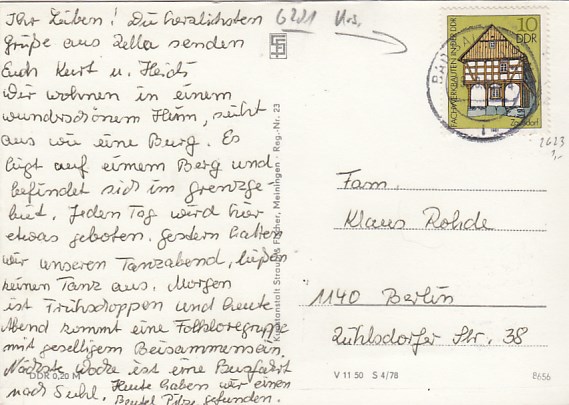 Ihr Lieben! Die herzlichsten
Grüße aus Zella senden
Euch Kurt u. Heidi
Wir wohnen in einem
wunderschönem Heim, sieht
aus wie eine Burg. Es
liegt auf einem Berg und
befindet sich im Grenzge-
biet. Jeden Tag wird hier
etwas geboten. Gestern hatten
wir unseren Tanzabend, ließen
keinen Tanz aus. Morgen
ist Frühschoppen und heute
Abend kommt eine Folkloregruppe
mit geselligem Beisammensein.
Nächste Woche ist eine Busfahrt
nach Suhl. Heute haben wir einen
Beutel Pilze gefunden.
DDR 0,20 M
6201
Kunstanstalt Straub & Fischer, Meiningen · Reg.-Nr. 23
10
DDR
FACHWERKBAUTEN IN DER DDR
Zaulsdorf
BAD
2623
1,-
Fam.
Klaus Rohde
1140 Berlin
Zühlsdorfer Str. 38
V 11 50 S 4/78
8656